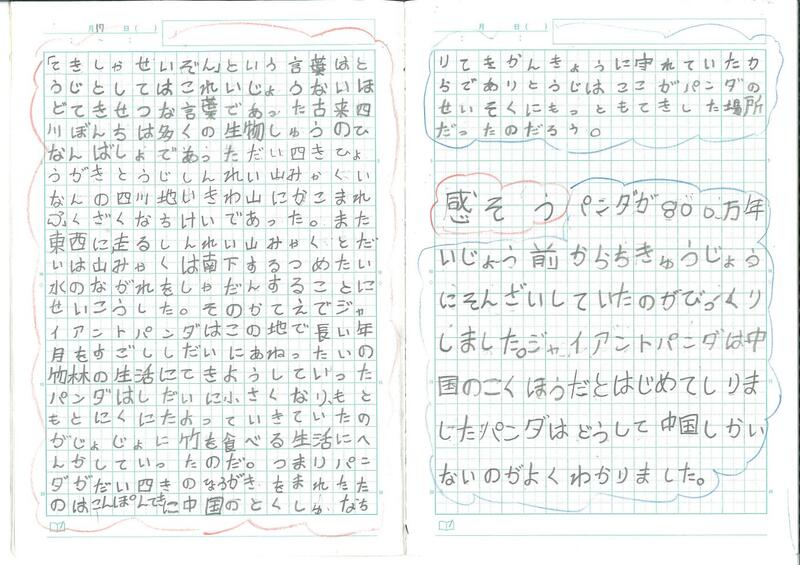 月17日( )
「てきしゃせいぞん」という言葉はと
うじとしてはこれいじょうないほ
どてきせつな言葉であった古来四
川ぼんちは多くの生物しゅうのひ
なんばしょであっただい四きひょ
うがきとうじしんれい山みゃくい
なんの四川地いきわ山にかこまれ
ふくざくなちけいであった。また
東西に走るしんれい山みゃくとだ
いは山みゃくは南下するつめたい
水のながれをしゃだんすることに
せいこうした。そのかてえでジャ
イアントパンダはこの地で長い年
月をすごししだいにあねったいの
竹林の生活にてきようしていった
パンダはしだいに小さくなり、もと
もとにくにたよっていきていたの
がじょじょに竹を食べる生活にへ
んかしていったのだ。つまりパン
ダがだい四きのひょうがきをまれたた
のはこんぽんてきに中国のとくしゅなち
月 日( )
りてきかんきょうに守れていたか
らでありとうじはここがパンダの
せいそくにもっともてきした場所
だったのだろう。
感そう パンダが800万年
いじょう前からちきゅうじょう
にそんざいしていたのがびっくり
しました。ジャイアントパンダは中
国のこくほうだとはじめてしりま
したパンダはどうして中国しかい
ないのがよくわかりました。